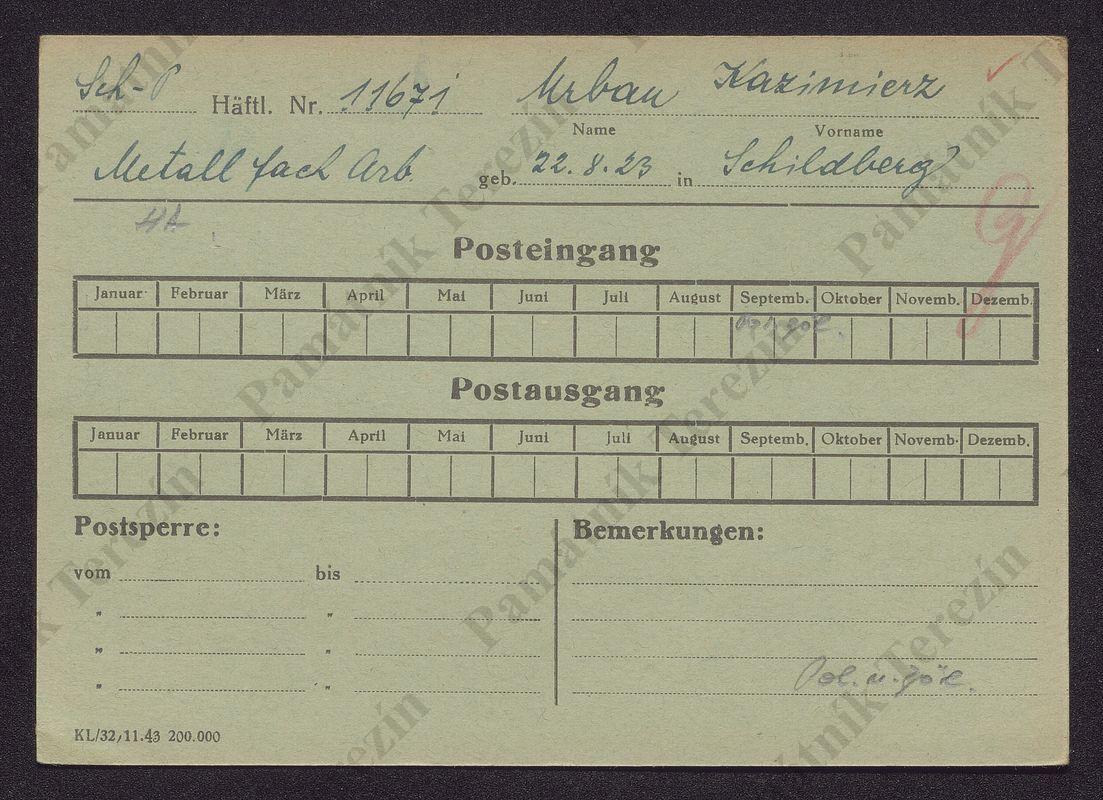 Sch-P Häftl. Nr. 11671 Urban Kazimierz
Name Vorname
Metall fach Arb. geb. 22.8.23 in Schildberg
Posteingang
Januar Februar März April Mai Juni Juli August Septemb. Oktober Novemb. Dezemb.
Postausgang
Januar Februar März April Mai Juni Juli August Septemb. Oktober Novemb. Dezemb.
Postsperre: Bemerkungen:
vom bis
" "
" "
" "
Pol. u.
KL/32/11.43 200.000
Památník Terezín